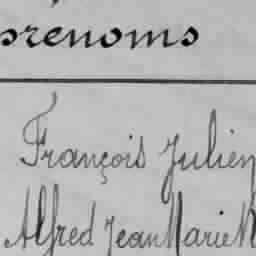 prénoms
François Julien
Alfred Jean Marie